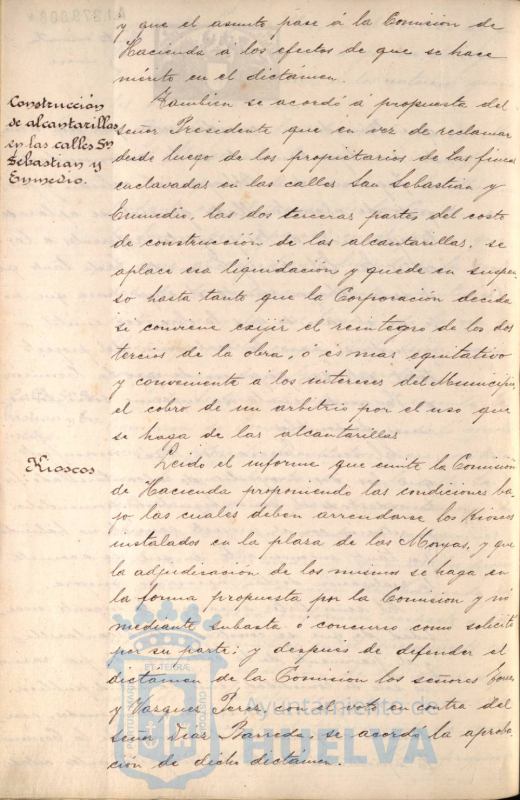 y que el asunto pase á la Comision de
Hacienda á los efectos de que se hace
mérito en el dictámen.
Construcción
de alcantarillas
en las calles Sn
Sebastian y
Enmedio.
Tambien se acordó á propuesta del
señor Presidente que en vez de reclamar
desde luego de los propietarios de las fincas
enclavadas en las calles San Sebastián y
Enmedio, las dos terceras partes del costo
de construcción de las alcantarillas, se
aplace esa liquidación y quede en suspen
so hasta tanto que la Corporación decida
si conviene exijir el reintegro de los dos
tercios de la obra, ó es mas equitativo
y conveniente á los intereses del Municipio,
el cobro de un arbitrio por el uso que
se haga de las alcantarillas
Kioscos
Leido el informe que emite la Comisión
de Hacienda proponiendo las condiciones ba
jo las cuales deben arrendarse los Kioscos
instalados en la plaza de las Monjas, y que
la adjudicación de los mismos se haga en
la forma propuesta por la Comision y nó
mediante subasta ó concurso como solicitó
por su parte; y después de defender el
dictamen de la Comision los señores
y Vazquez Perez, con el voto en contra del
señor Diaz Barreda, se acordó la aproba
ción de dicho dictámen.
Ayuntamiento de
HUELVA